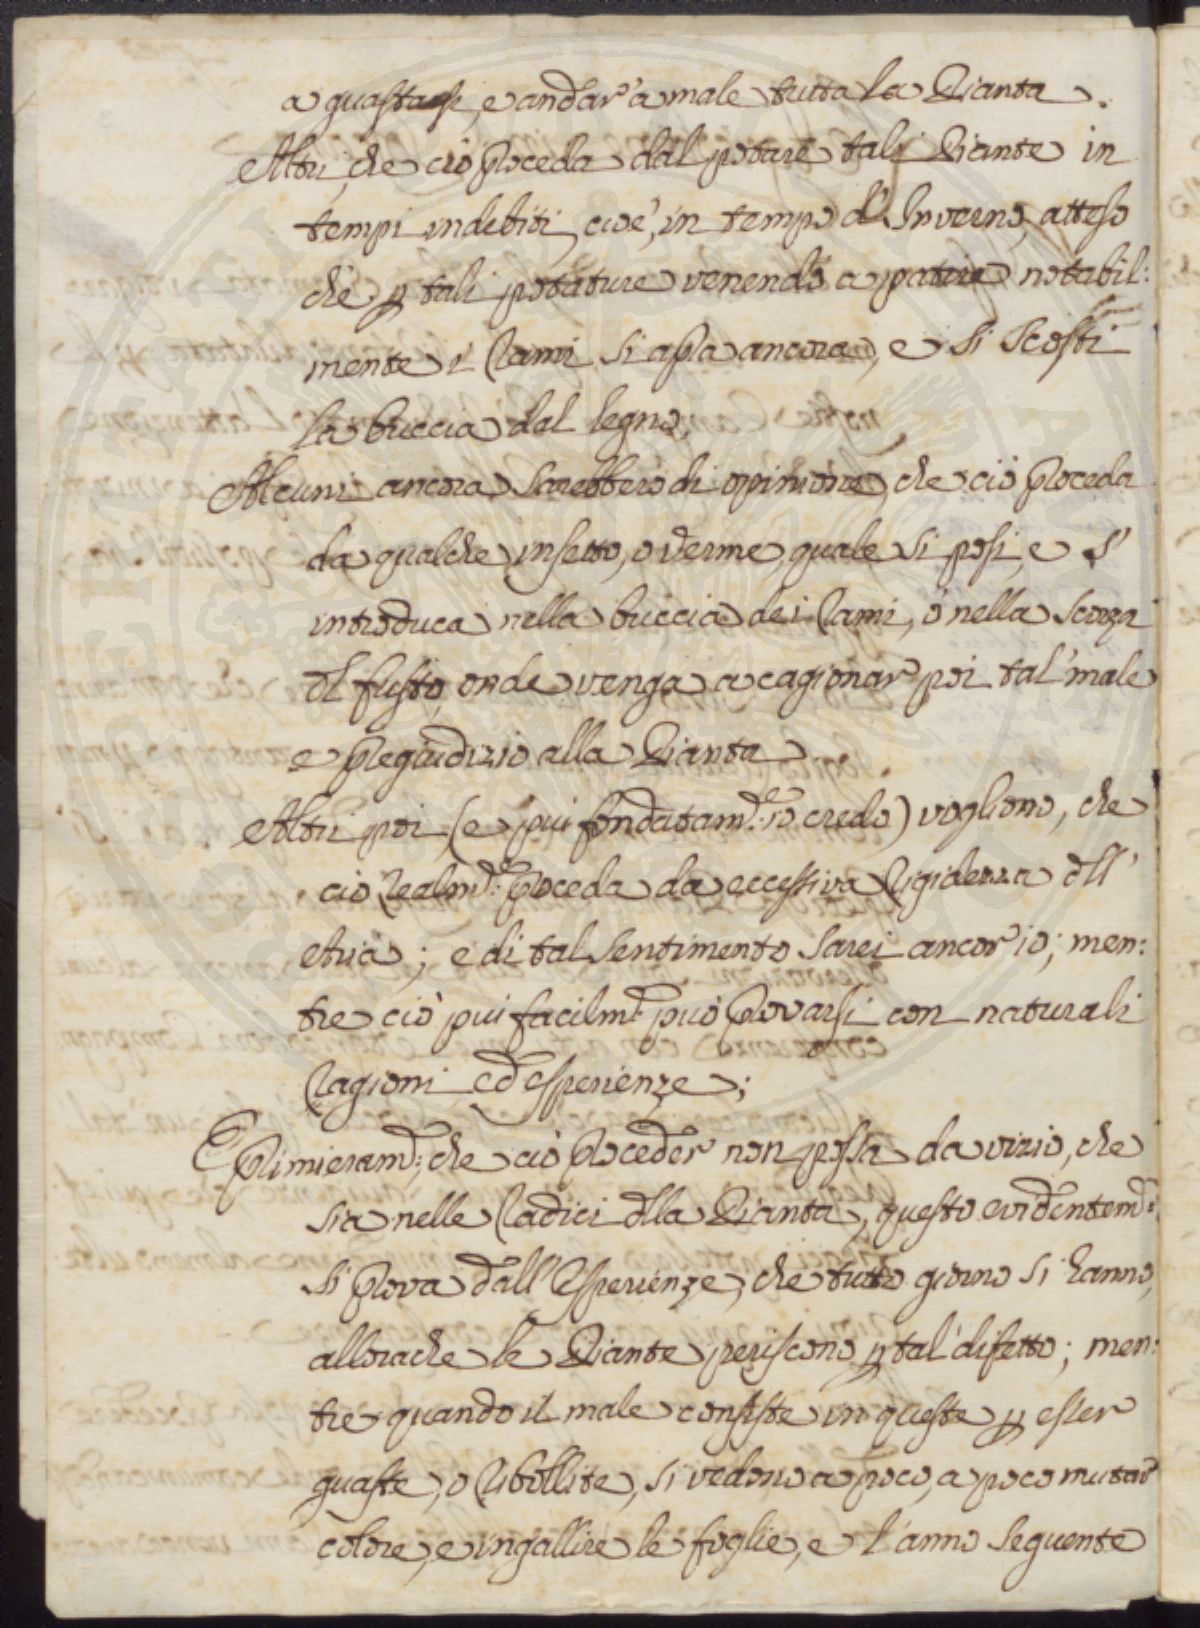 a guastarsi, e andar' a male tutta la Pianta.
Altri, che ciò proceda dal potare tali Piante in
tempi indebiti, cioè, in tempo d'Inverno, atteso
che p tali potature venendo a patire notabil:
mente i Rami si apra ancora, e si scosti
la buccia dal legno;
Alcuni ancora sarebbero di opinione, che ciò proceda
da qualche insetto, o verme, quale si posi, e s'
introduca nella buccia dei Rami, o nella scorza
dl fusto, onde venga a cagionar' poi tal' male
e pregiudizio alla Pianta.
Altri poi, (e più fondatam.te io credo) vogliono, che
ciò realm.te proceda da eccessiva Rigidezza dll'
Aria; e di tal sentimento sarei ancor' io; men:
tre ciò più facilm.te può provarsi con naturali
Ragioni ed esperienze;
E primieram.te, che ciò proceder non possa da vizio, che
sia nelle Radici dlla Pianta, questo evidentem.te
si prova dall'Esperienze, che tutto giorno si hanno,
allorache le Piante periscono p tal' difetto; men:
tre quando il male consiste in queste p esser
guaste, o ribollite, si vedono a poco, a poco mutar'
colore, e ingallire le foglie, e l'anno seguente